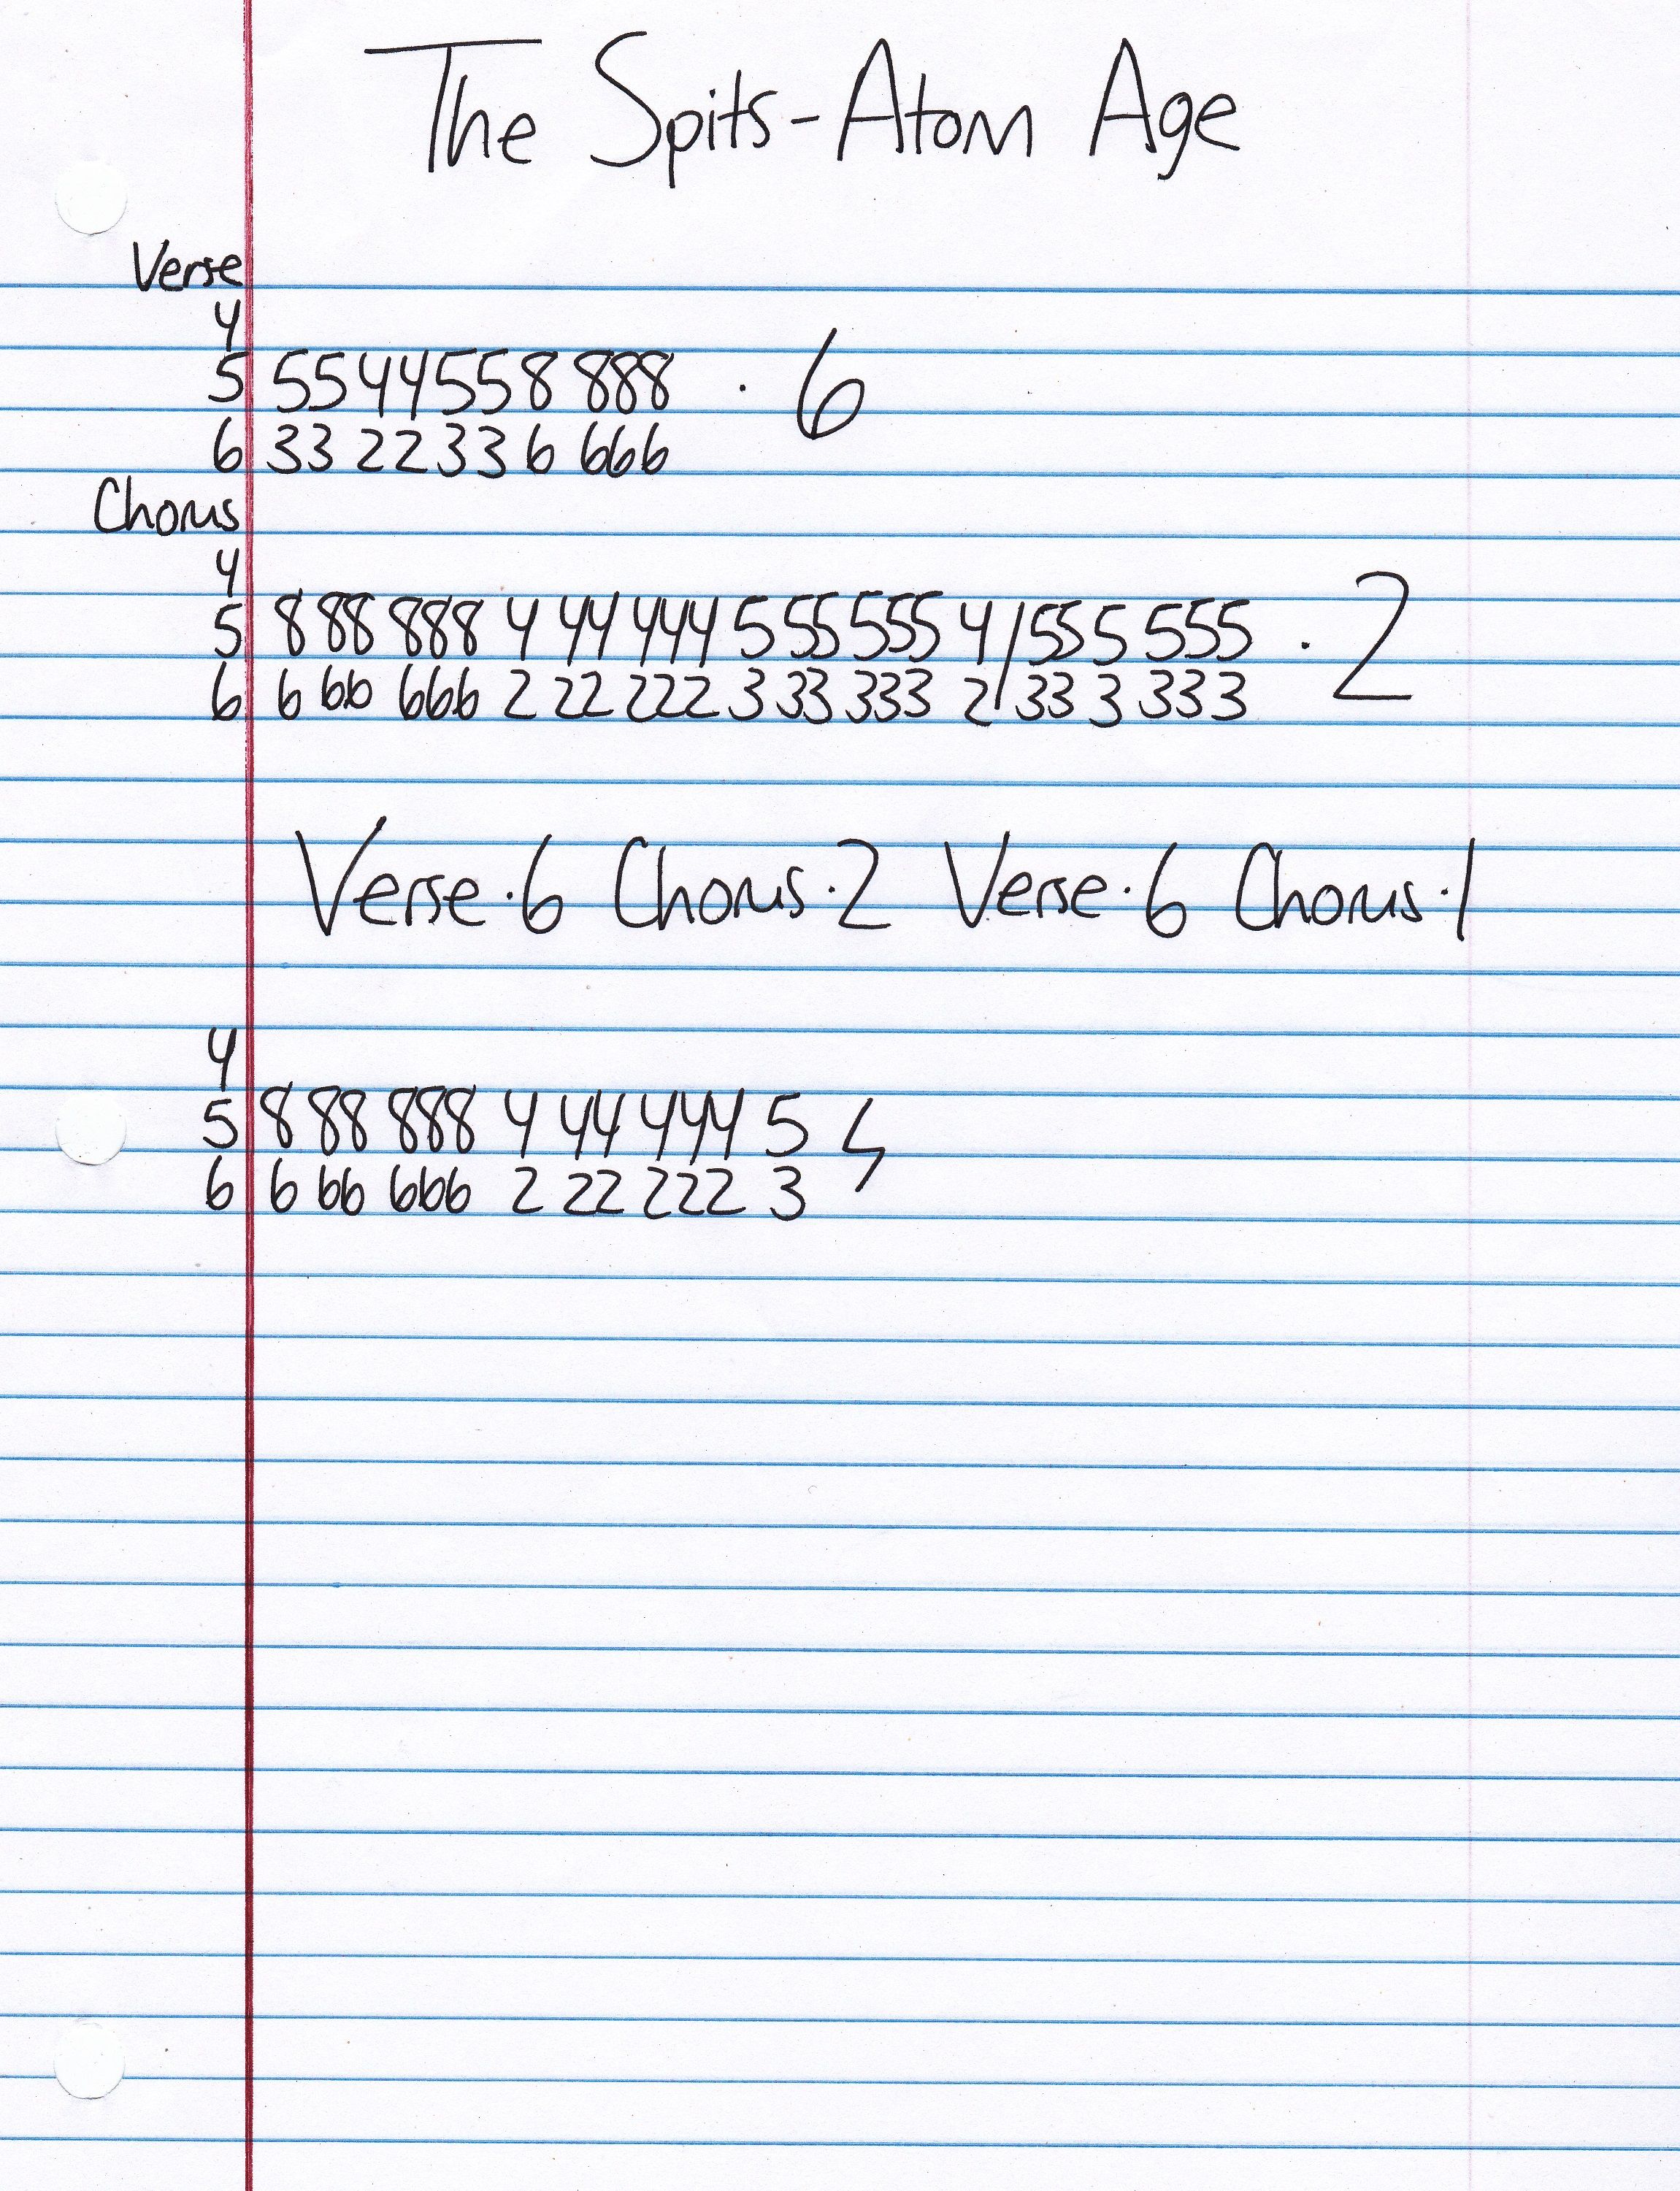 The Spits-Atom Age
Verse
4
5 5544558 888 · 6
6 33 22 33 6 666
Chorus
4
5 8 88 888 4 44 444 5 55 555 4/55 5 555 · 2
6 6 66 666 2 22 222 3 33 333 2/33 3 333
Verse·6 Chorus·2 Verse·6 Chorus·1
4
5 8 88 888 4 44 444 5
6 6 66 666 2 22 222 3